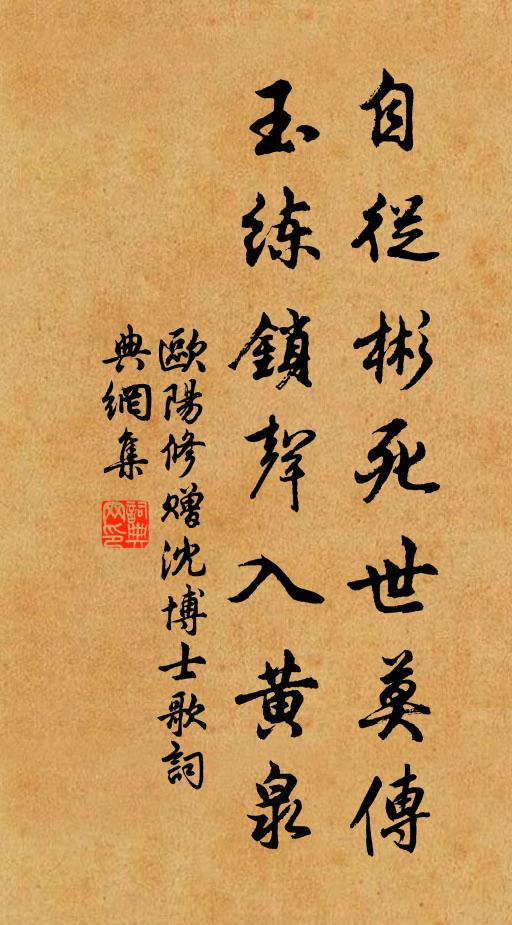 自從彬死世莫傳
玉練鎖聲入黃泉
歐陽修贈沈博士歌詞
典網集
詞典网印